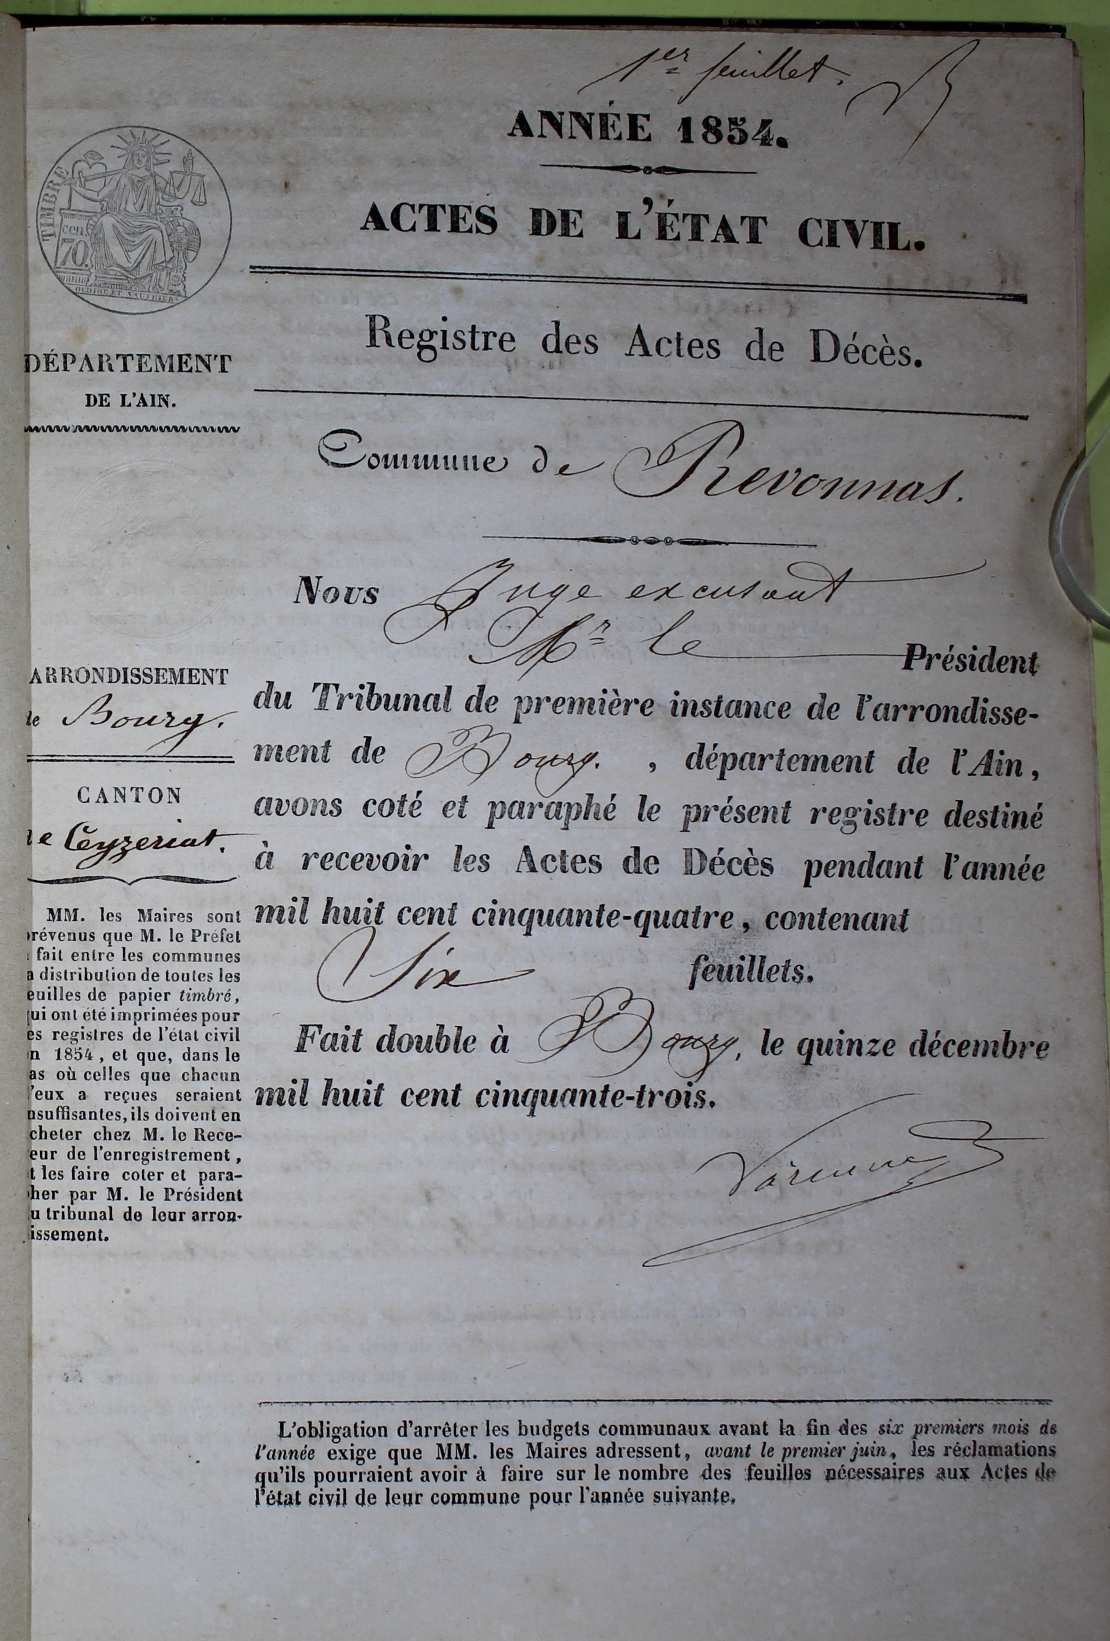 1er feuillet.
ANNÉE 1854.
ACTES DE L'ÉTAT CIVIL.
TIMBRE
cen
70
DÉPARTEMENT
DE L'AIN.
Registre des Actes de Décès.
Commune de Revonnas.
Nous Juge excusant
Mr le Président
du Tribunal de première instance de l'arrondisse-
ment de Bourg. , département de l'Ain,
avons coté et paraphé le présent registre destiné
à recevoir les Actes de Décès pendant l'année
mil huit cent cinquante-quatre, contenant
Six feuillets.
Fait double à Bourg, le quinze décembre
mil huit cent cinquante-trois.
ARRONDISSEMENT
de Bourg.
CANTON
de Ceyzeriat.
MM. les Maires sont
prévenus que M. le Préfet
fait entre les communes
a distribution de toutes les
euilles de papier timbré,
qui ont été imprimées pour
es registres de l'état civil
n 1854, et que, dans le
as où celles que chacun
d'eux a reçues seraient
nsuffisantes, ils doivent en
cheter chez M. le Rece-
eur de l'enregistrement,
t les faire coter et para-
her par M. le Président
u tribunal de leur arron-
issement.
L'obligation d'arrêter les budgets communaux avant la fin des six premiers mois de
l'année exige que MM. les Maires adressent, avant le premier juin, les réclamations
qu'ils pourraient avoir à faire sur le nombre des feuilles nécessaires aux Actes de
l'état civil de leur commune pour l'année suivante.